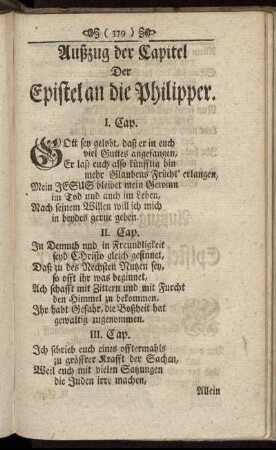 ( 379 )
Außzug der Capitel
Der
Epistel an die Philipper.
I. Cap.
GOtt sey gelobt, daß er in euch
viel Guttes angefangen,
Er laß euch also künfftig hin
mehr Glaubens Frücht' erlangen,
Mein JESUS bleibet mein Gewinn
im Tod und auch im Leben,
Nach seinem Willen will ich mich
in beydes gerne geben.
II. Cap.
In Demuth und in Freundligkeit
seyd Christo gleich gesinnet,
Daß zu des Nechsten Nutzen sey,
so offt ihr was beginnet,
Ach schafft mit Zittern und mit Furcht
den Himmel zu bekommen,
Ihr habt Gefahr, die Boßheit hat
gewaltig zugenommen.
III. Cap.
Ich schrieb euch eines offtermahls
zu grösster Krafft der Sachen,
Weil euch mit vielen Satzungen
die Juden irre machen,
Allein